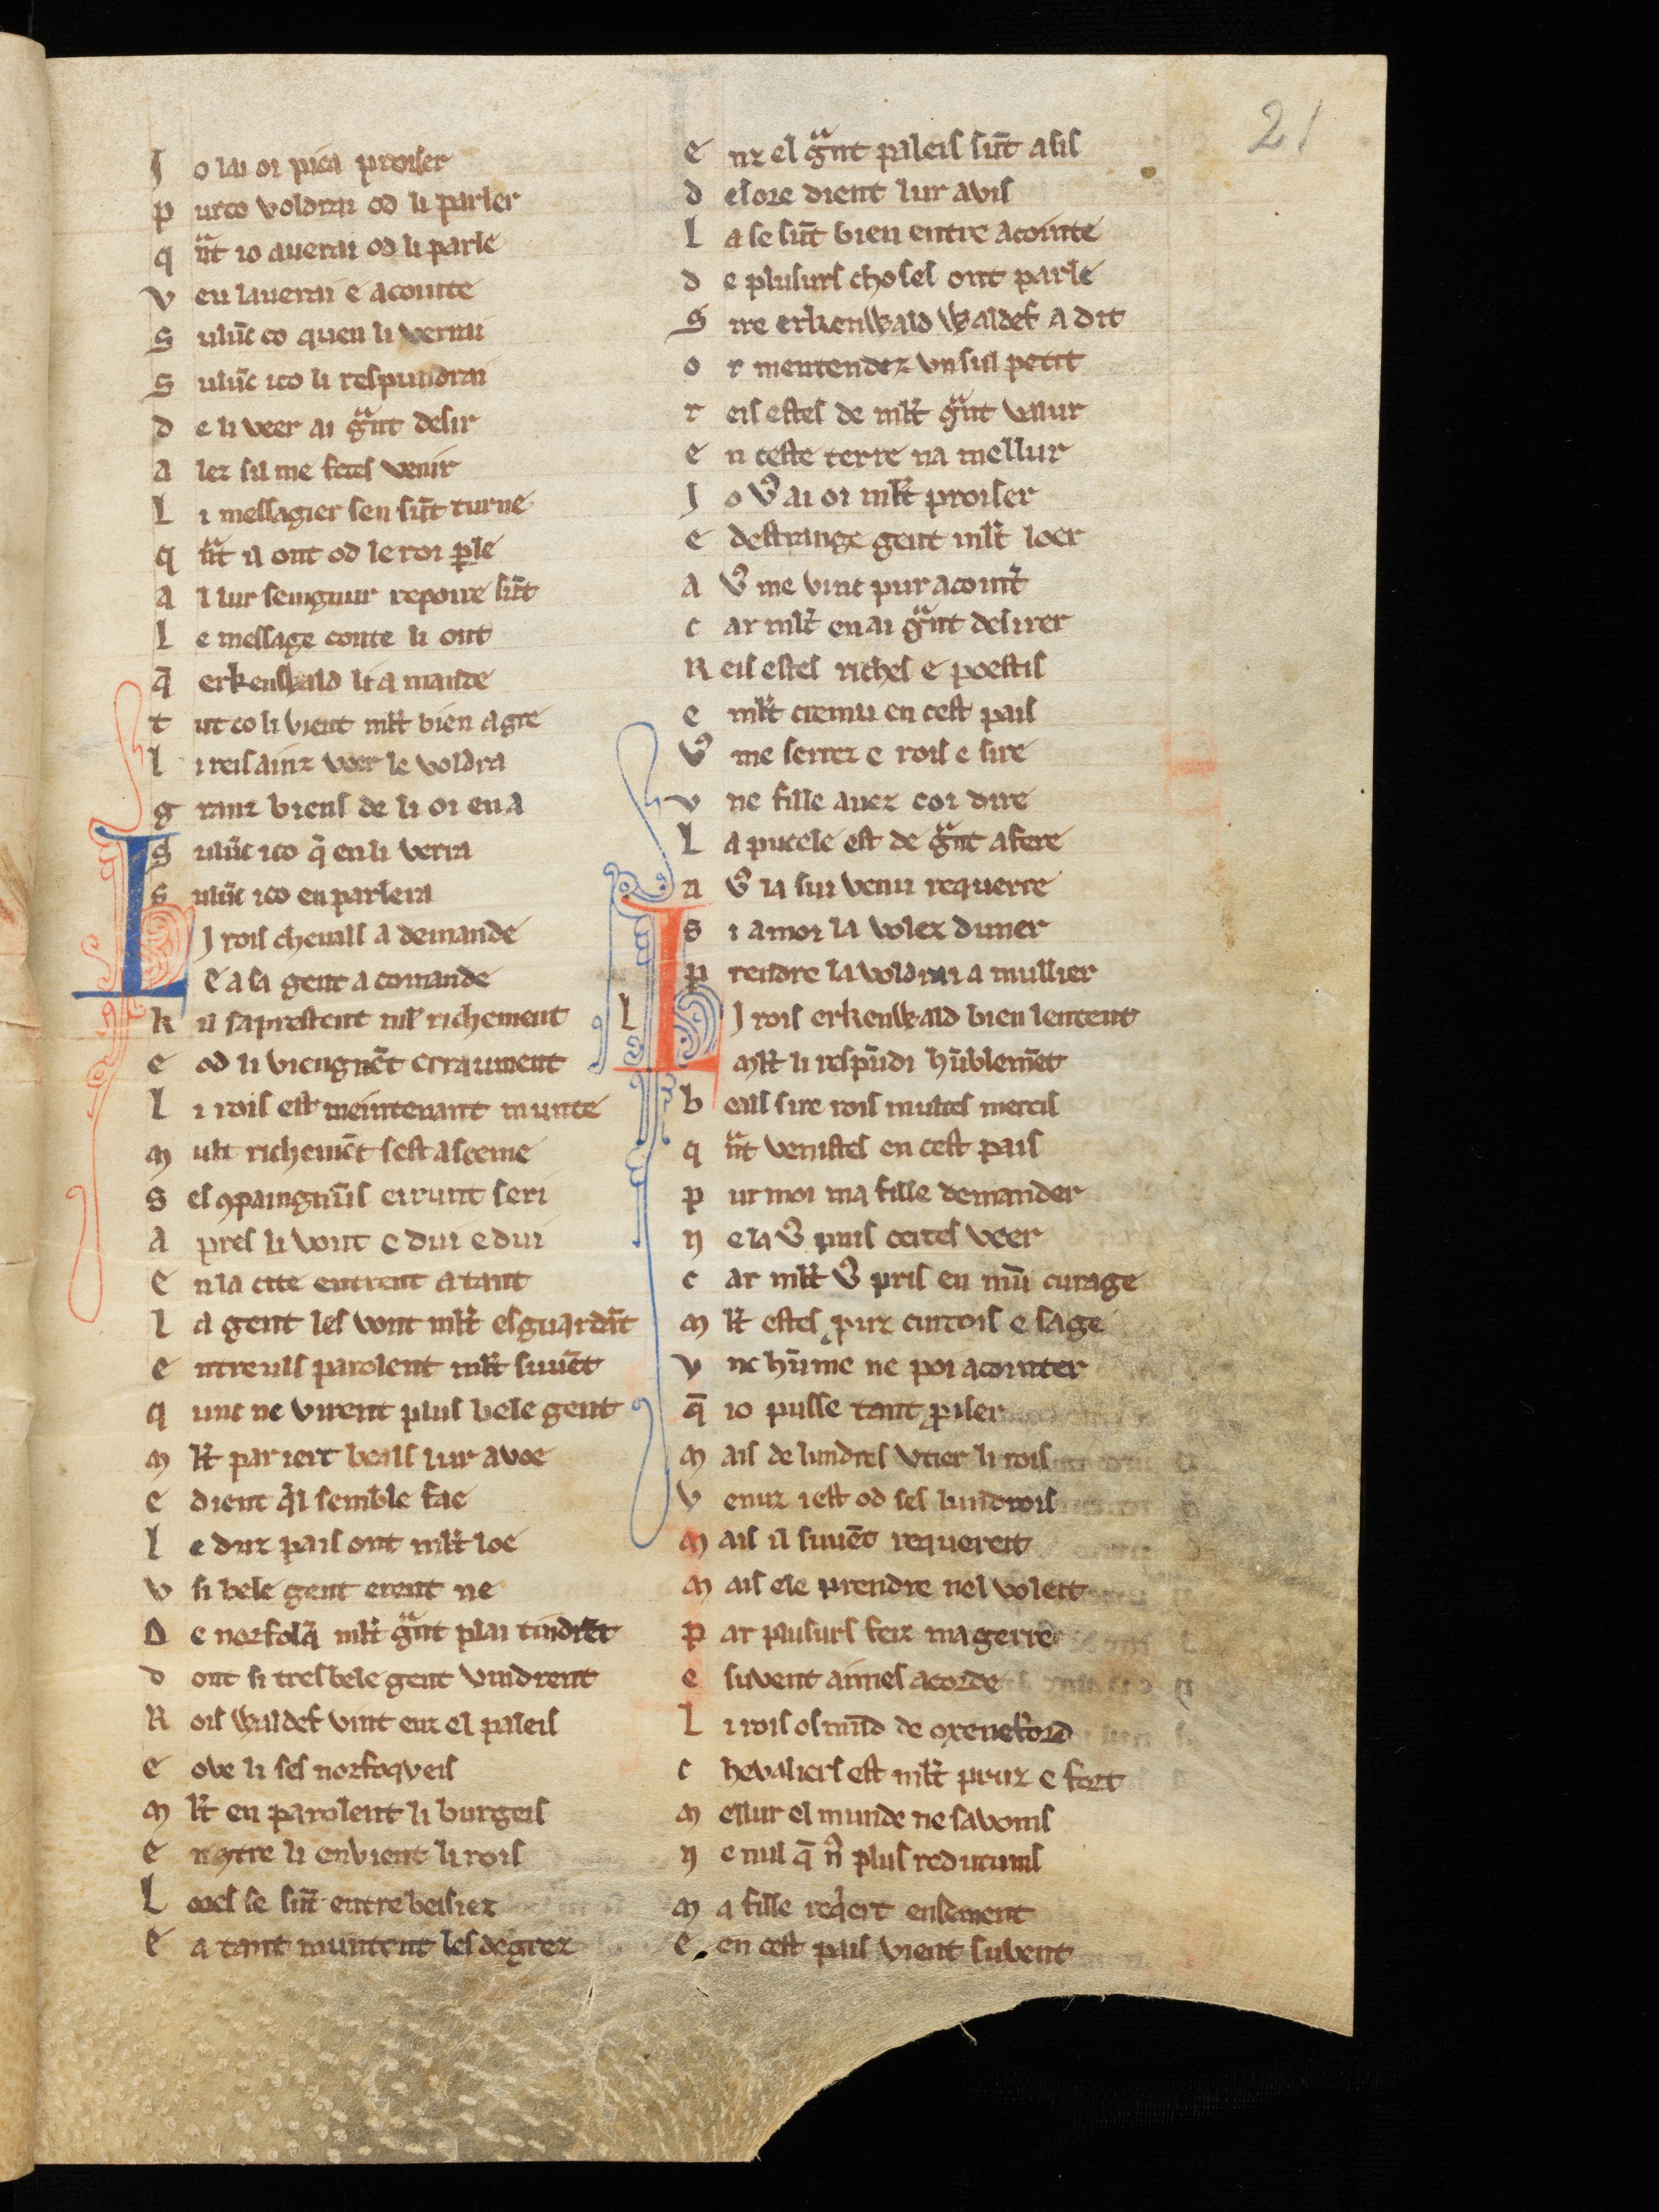 21
Jo lai oi pieca proiser
purco voldrai od li parler
qͣnt io auerai od li parle
veu lauerai e acointe
Suluc̄ co quen li verrai
Suluc̄ ico li respundrai
de li veer ai gͣnt desir
alez sil me fetes venir
Li messagier sen sūt turne
qͣnt il ont od le roi ꝑle
al lur seingnur repoire sūt
le message conte li ont
q̄ erkenwald li a mande
tut co li vient ml̄t bien a gre
li reis ainz veer le voldra
granz biens de li oi en a
Suluc̄ ico q̄ en li verra
suluc̄ ico en parlera
LJ rois cheuals a demande
E a sa gent a comande
kil saprestent ml̄t richement
e od li viengnēt erraument
li rois est meintenant munte
mult richemēt sest asceme
Ses ꝯpaingnūs eirunt seri
apres li vont e dui e dui
En la cite entrent a tant
la gent les vont ml̄t esguardāt
entreuls parolent ml̄t suuēt
qunc ne virent plus bele gent
ml̄t par iert beals lur avoe
e dient q̍l semble fae
le duz pais ont ml̄t loe
v si bele gent erent ne
De norfolq̄ ml̄t gͣnt plai tindrēt
dont si tres bele gent vindrent
Rois Waldef vint enz el paleis
e ove li ses norfoqveis
ml̄t en parolent li burgeis
encͦtre li envient li rois
Loes se sūt entrebeisiez
e a tant muntent les degrez
enz el gͣnt paleis sūt asis
delore dient lur avis
la se sūt bien entre acointe
de plusurs choses ont parle
Sire erkenwald Waldef a dit
or mentendez vn sul petit
reis estes de ml̄t gͣnt valur
en ceste terre na mellur
Jo vꝰ ai oi ml̄t proiser
e destrange gent ml̄t loer
a vꝰ me vinc pur acoint̄
car ml̄t en ai gͣnt desirer
Reis estes riches e poestis
e ml̄t cremu en cest pais
vꝰ me serrez e rois e sire
vne fille auez coi dire
La pucele est de gͣnt afere
a vꝰ la sui venu requerre
si amoi la volez duner
prendre la voldrai a mullier
LJ rois erkenwald bien lentent
ml̄t li respūdi hūblemēt
beals sire rois multes merciz
qͣnt venistes en cest pais
pur moi ma fille demander
ne la vꝰ puis certes veer
car ml̄t vꝰ pris en mū curage
ml̄t estes pruz curtois e sage
vne hūme ne poi acointer
q̄ io pusse tant p̱riser
mais de lundres vtier li rois
venuz i est od ses lundrois
mais il suuēt requereit
mais ele prendre nel voleit
par plusurs feiz ma gerre
e suvent aimes acorde
Li rois osmūd de oxeneford
chevaliers est ml̄t pruz e fort
mellur el munde ne savoms
ne nul q̄ nꝰ plus redutums
ma fille req̍ert ensement
e en cest pais vient suvent